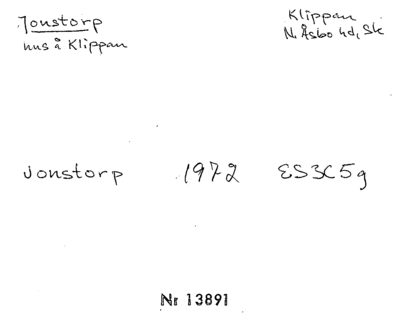 Jonstorp
hus å Klippan
Klippan
N. Åsbo hd, Sk
Jonstorp 1972 ES3C5g
Nr 13891